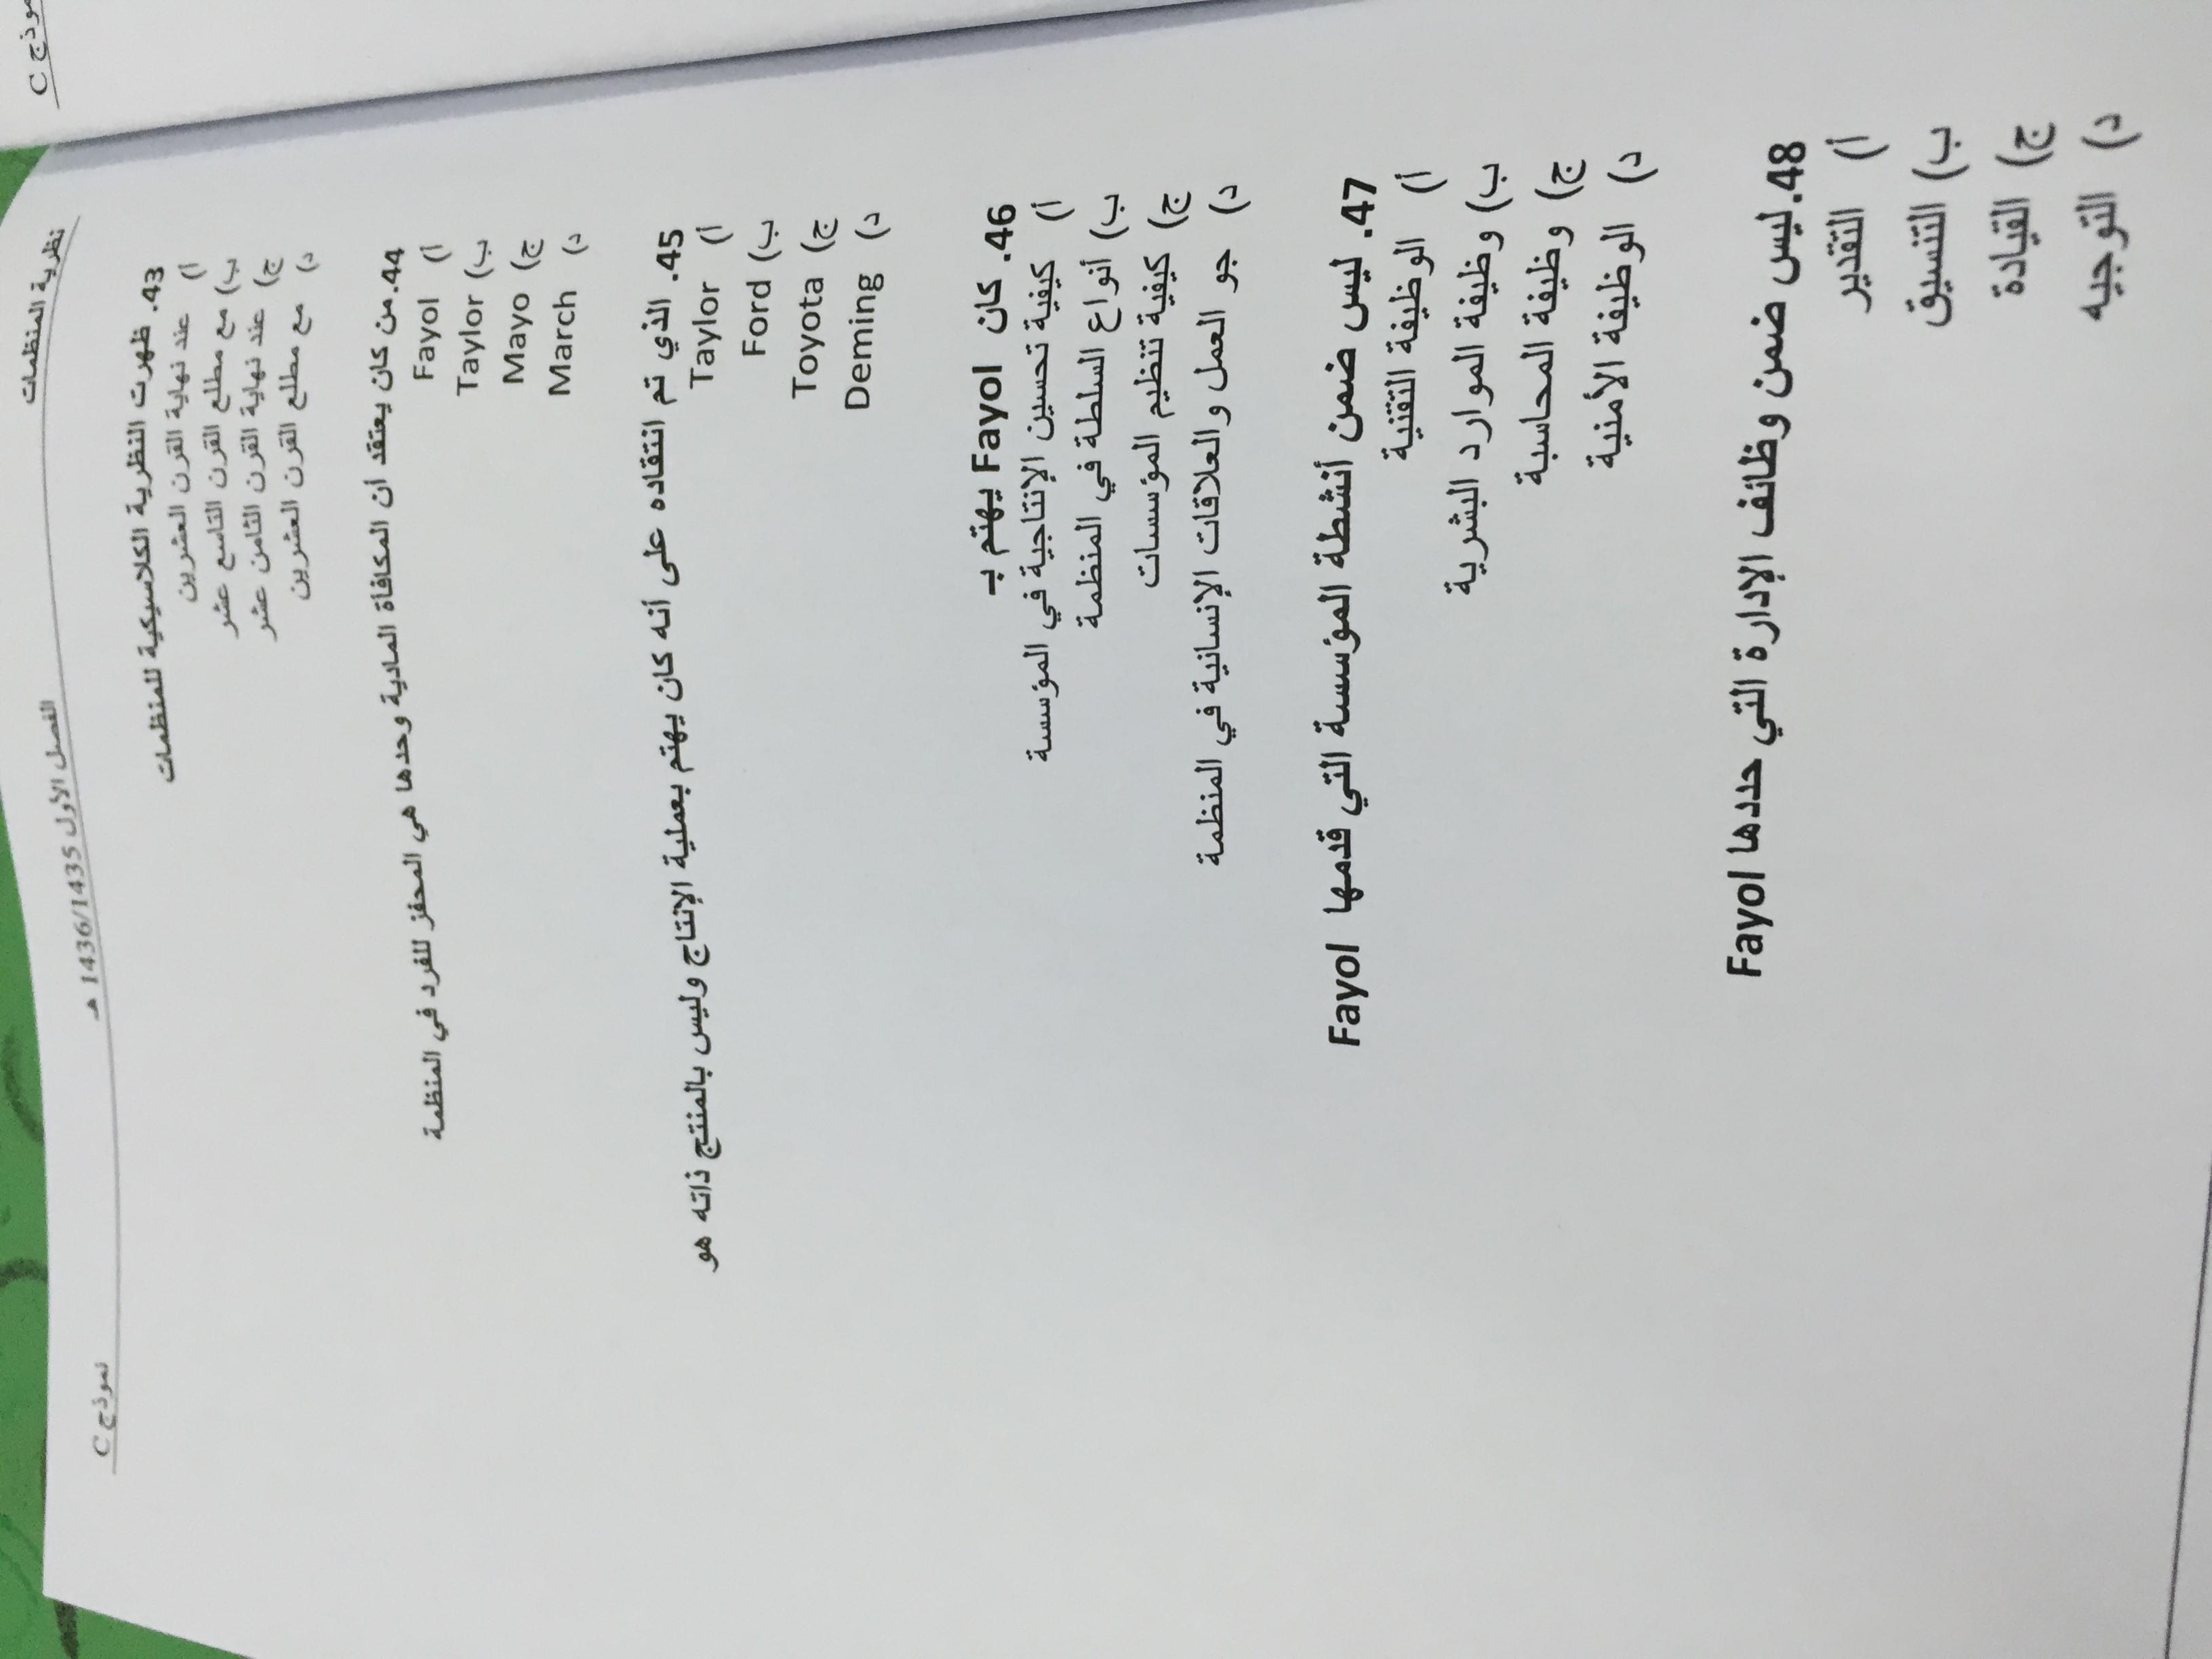 نموذج C
نظرية المنظمات الفصل الأول 1436/1435 هـ نموذج C
43. ظهرت النظرية الكلاسيكية للمنظمات
أ) عند نهاية القرن العشرين
ب) مع مطلع القرن التاسع عشر
ج) عند نهاية القرن الثامن عشر
د) مع مطلع القرن العشرين
44. من كان يعتقد أن المكافأة المادية وحدها هي المحفز للفرد في المنظمة
أ) Fayol
ب) Taylor
ج) Mayo
د) March
45. الذي تم انتقاده على أنه كان يهتم بعملية الإنتاج وليس بالمنتج ذاته هو
أ) Taylor
ب) Ford
ج) Toyota
د) Deming
46. كان Fayol يهتم بـ
أ) كيفية تحسين الإنتاجية في المؤسسة
ب) أنواع السلطة في المنظمة
ج) كيفية تنظيم المؤسسات
د) جو العمل والعلاقات الإنسانية في المنظمة
47. ليس ضمن أنشطة المؤسسة التي قدمها Fayol
أ) الوظيفة التقنية
ب) وظيفة الموارد البشرية
ج) وظيفة المحاسبة
د) الوظيفة الأمنية
48. ليس ضمن وظائف الإدارة التي حددها Fayol
أ) التقدير
ب) التنسيق
ج) القيادة
د) التوجيه